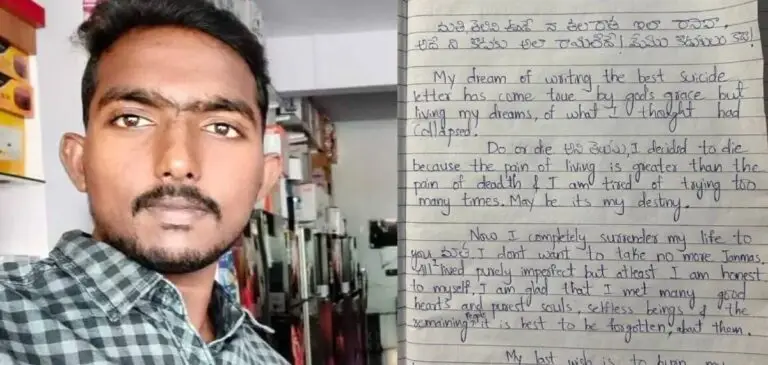 నా తలరాత ఇలా
My dream of writing the best suicide
letter has come true by god's grace but
living my dreams, of what I thought had
collapsed.
Do or die అని, I decided to die
because the pain of living is greater than the
pain of deadth & I am tired of trying too
many times. May be its my destiny.
Now I completely surrender my life to
you, I dont want to take no more Janmas.
All lived purely imperfect but atleast I am honest
to myself, I am glad that I met many good
hearts and purest souls, selfless beings & the
remaining people it is best to be forgotten about them.
My last wish is to